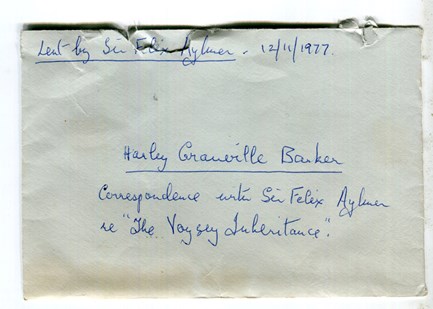 Lent by Sir Felix Aylmer - 12/11/1977.
Harley Granville Barker
Correspondence with Sir Felix Aylmer
re "The Voysey Inheritance".